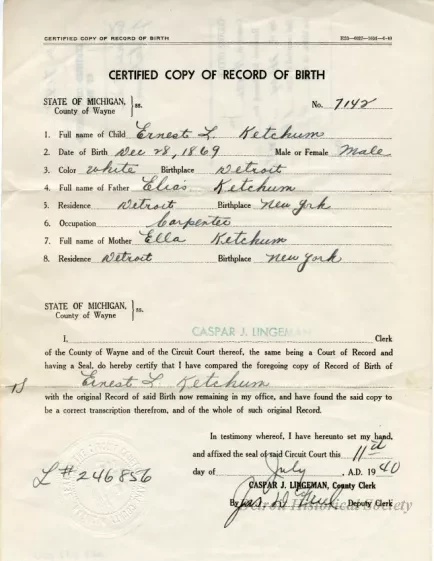 CERTIFIED COPY OF RECORD OF BIRTH
CERTIFIED COPY OF RECORD OF BIRTH
STATE OF MICHIGAN, } ss.
County of Wayne
No. 7142
1. Full name of Child Ernest L. Ketchum
2. Date of Birth Dec 28, 1869 Male or Female Male
3. Color White Birthplace Detroit
4. Full name of Father Elias Ketchum
5. Residence Detroit Birthplace New York
6. Occupation Carpenter
7. Full name of Mother Ella Ketchum
8. Residence Detroit Birthplace New York
STATE OF MICHIGAN, } ss.
County of Wayne
CASPAR J. LINGEMAN
I, Clerk
of the County of Wayne and of the Circuit Court thereof, the same being a Court of Record and
having a Seal, do hereby certify that I have compared the foregoing copy of Record of Birth of
Ernest L. Ketchum
with the original Record of said Birth now remaining in my office, and have found the said copy to
be a correct transcription therefrom, and of the whole of such original Record.
In testimony whereof, I have hereunto set my hand,
and affixed the seal of said Circuit Court this 11th
day of July, A.D. 1940
L # 246856
CASPAR J. LINGEMAN, County Clerk
By Deputy Clerk
Detroit Historical Society